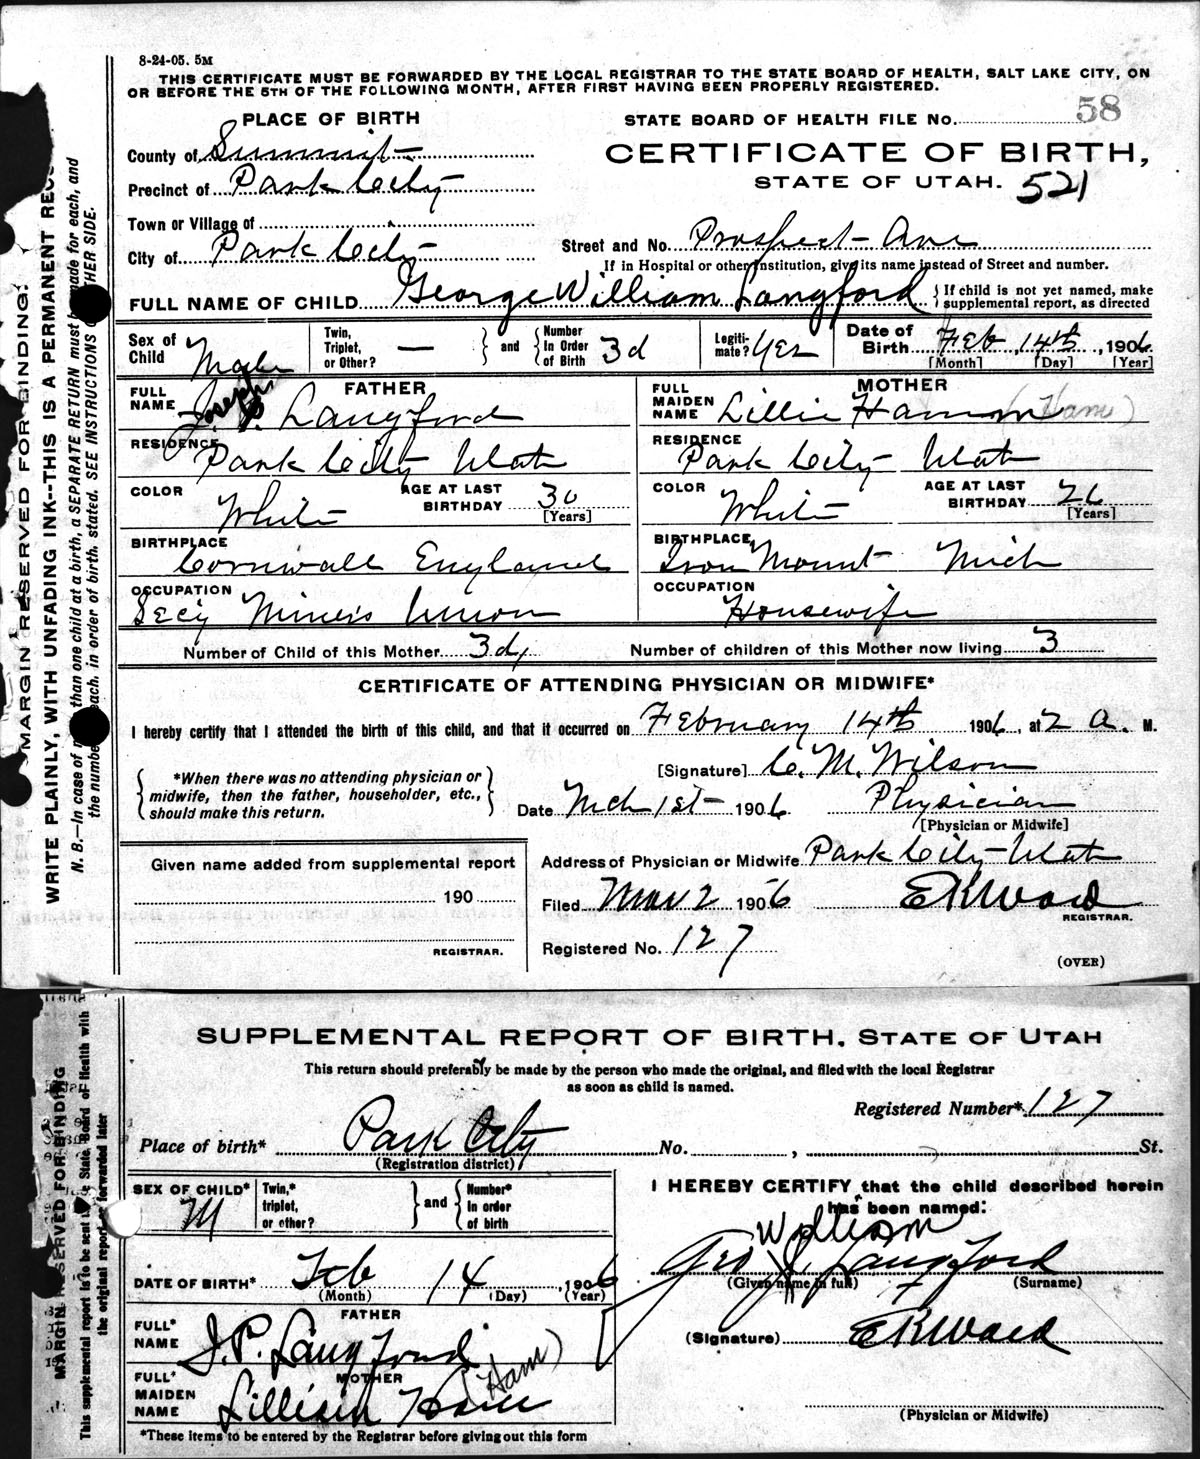 8-24-05. 5M
THIS CERTIFICATE MUST BE FORWARDED BY THE LOCAL REGISTRAR TO THE STATE BOARD OF HEALTH, SALT LAKE CITY, ON
OR BEFORE THE 5TH OF THE FOLLOWING MONTH, AFTER FIRST HAVING BEEN PROPERLY REGISTERED.
PLACE OF BIRTH
STATE BOARD OF HEALTH FILE No. 58
County of Summit
CERTIFICATE OF BIRTH,
Precinct of Park City
STATE OF UTAH. 521
Town or Village of
City of Park City
Street and No. Prospect Ave
If in Hospital or other Institution, give its name instead of Street and number.
FULL NAME OF CHILD George William Langford
If child is not yet named, make
supplemental report, as directed
Sex of Child Male
Twin, Triplet, or Other? —
and
Number In Order of Birth 3d
Legitimate? Yes
Date of Birth Feb, 14th, 1906
[Month] [Day] [Year]
FATHER
FULL NAME Joseph P. Langford
MOTHER
FULL MAIDEN NAME Lillie Hamm (Ham)
RESIDENCE Park City Utah
RESIDENCE Park City Utah
COLOR White
AGE AT LAST BIRTHDAY 30 [Years]
COLOR White
AGE AT LAST BIRTHDAY 26 [Years]
BIRTHPLACE Cornwall England
BIRTHPLACE Iron Mount Mich
OCCUPATION Secy Miners Union
OCCUPATION Housewife
Number of Child of this Mother 3d
Number of children of this Mother now living 3
CERTIFICATE OF ATTENDING PHYSICIAN OR MIDWIFE*
I hereby certify that I attended the birth of this child, and that it occurred on February 14th 1906, at 2 a. M.
*When there was no attending physician or
midwife, then the father, householder, etc.,
should make this return.
[Signature] C. M. Wilson
Date Mch 1st 1906 Physician
[Physician or Midwife]
Given name added from supplemental report
190
REGISTRAR.
Address of Physician or Midwife Park City Utah
Filed Mar 2 1906 E K Ward
REGISTRAR.
Registered No. 127
(OVER)
MARGIN RESERVED FOR BINDING.
WRITE PLAINLY, WITH UNFADING INK--THIS IS A PERMANENT
N. B.—In case of than one child at a birth, a SEPARATE RETURN must be made for each, and
the number each, in order of birth, stated. SEE INSTRUCTIONS OTHER SIDE.
SUPPLEMENTAL REPORT OF BIRTH, STATE OF UTAH
This return should preferably be made by the person who made the original, and filed with the local Registrar
as soon as child is named.
Registered Number* 127
Place of birth* Park City No. , St.
(Registration district)
SEX OF CHILD* M
Twin,* triplet, or other?
and
Number* In order of birth
I HEREBY CERTIFY that the child described herein
has been named:
William
Geo W. Langford
(Given name in full) (Surname)
DATE OF BIRTH* Feb 14, 1906
(Month) (Day) (Year)
FATHER
FULL* NAME J. P. Langford
(Signature) E K Ward
MOTHER
FULL* MAIDEN NAME Lillian Ham (Ham)
(Physician or Midwife)
*These items to be entered by the Registrar before giving out this form
MARGIN RESERVED FOR BINDING
This supplemental report is to be sent State Board of Health with
the original report forwarded later